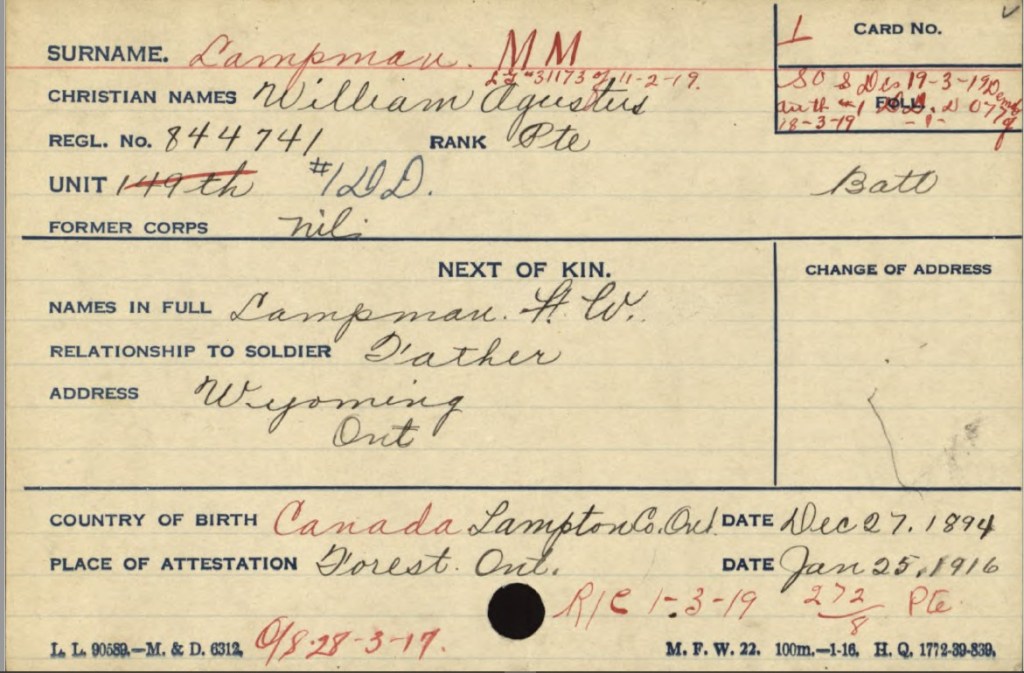 SURNAME. Lampman. MM
L.G. #31173 of 11-2-19.
CARD No. 1
CHRISTIAN NAMES William Agustus
S O S Des 19-3-19 Demob
auth #1 DD. D 077 of
18-3-19 -1-
FOLL.
REGL. No. 844741 RANK Pte
UNIT 149th #1 DD. Batt
FORMER CORPS nil.
NEXT OF KIN. CHANGE OF ADDRESS
NAMES IN FULL Lampman. H. W.
RELATIONSHIP TO SOLDIER Father
ADDRESS Wyoming
Ont
COUNTRY OF BIRTH Canada Lampton Co. Ont. DATE Dec 27. 1894
PLACE OF ATTESTATION Forest. Ont. DATE Jan 25, 1916
R/C 1-3-19 272/8 Pte
L. L. 90589.—M. & D. 6312. O/S 28-3-17. M. F. W. 22. 100m.—1-16. H. Q. 1772-39-839.